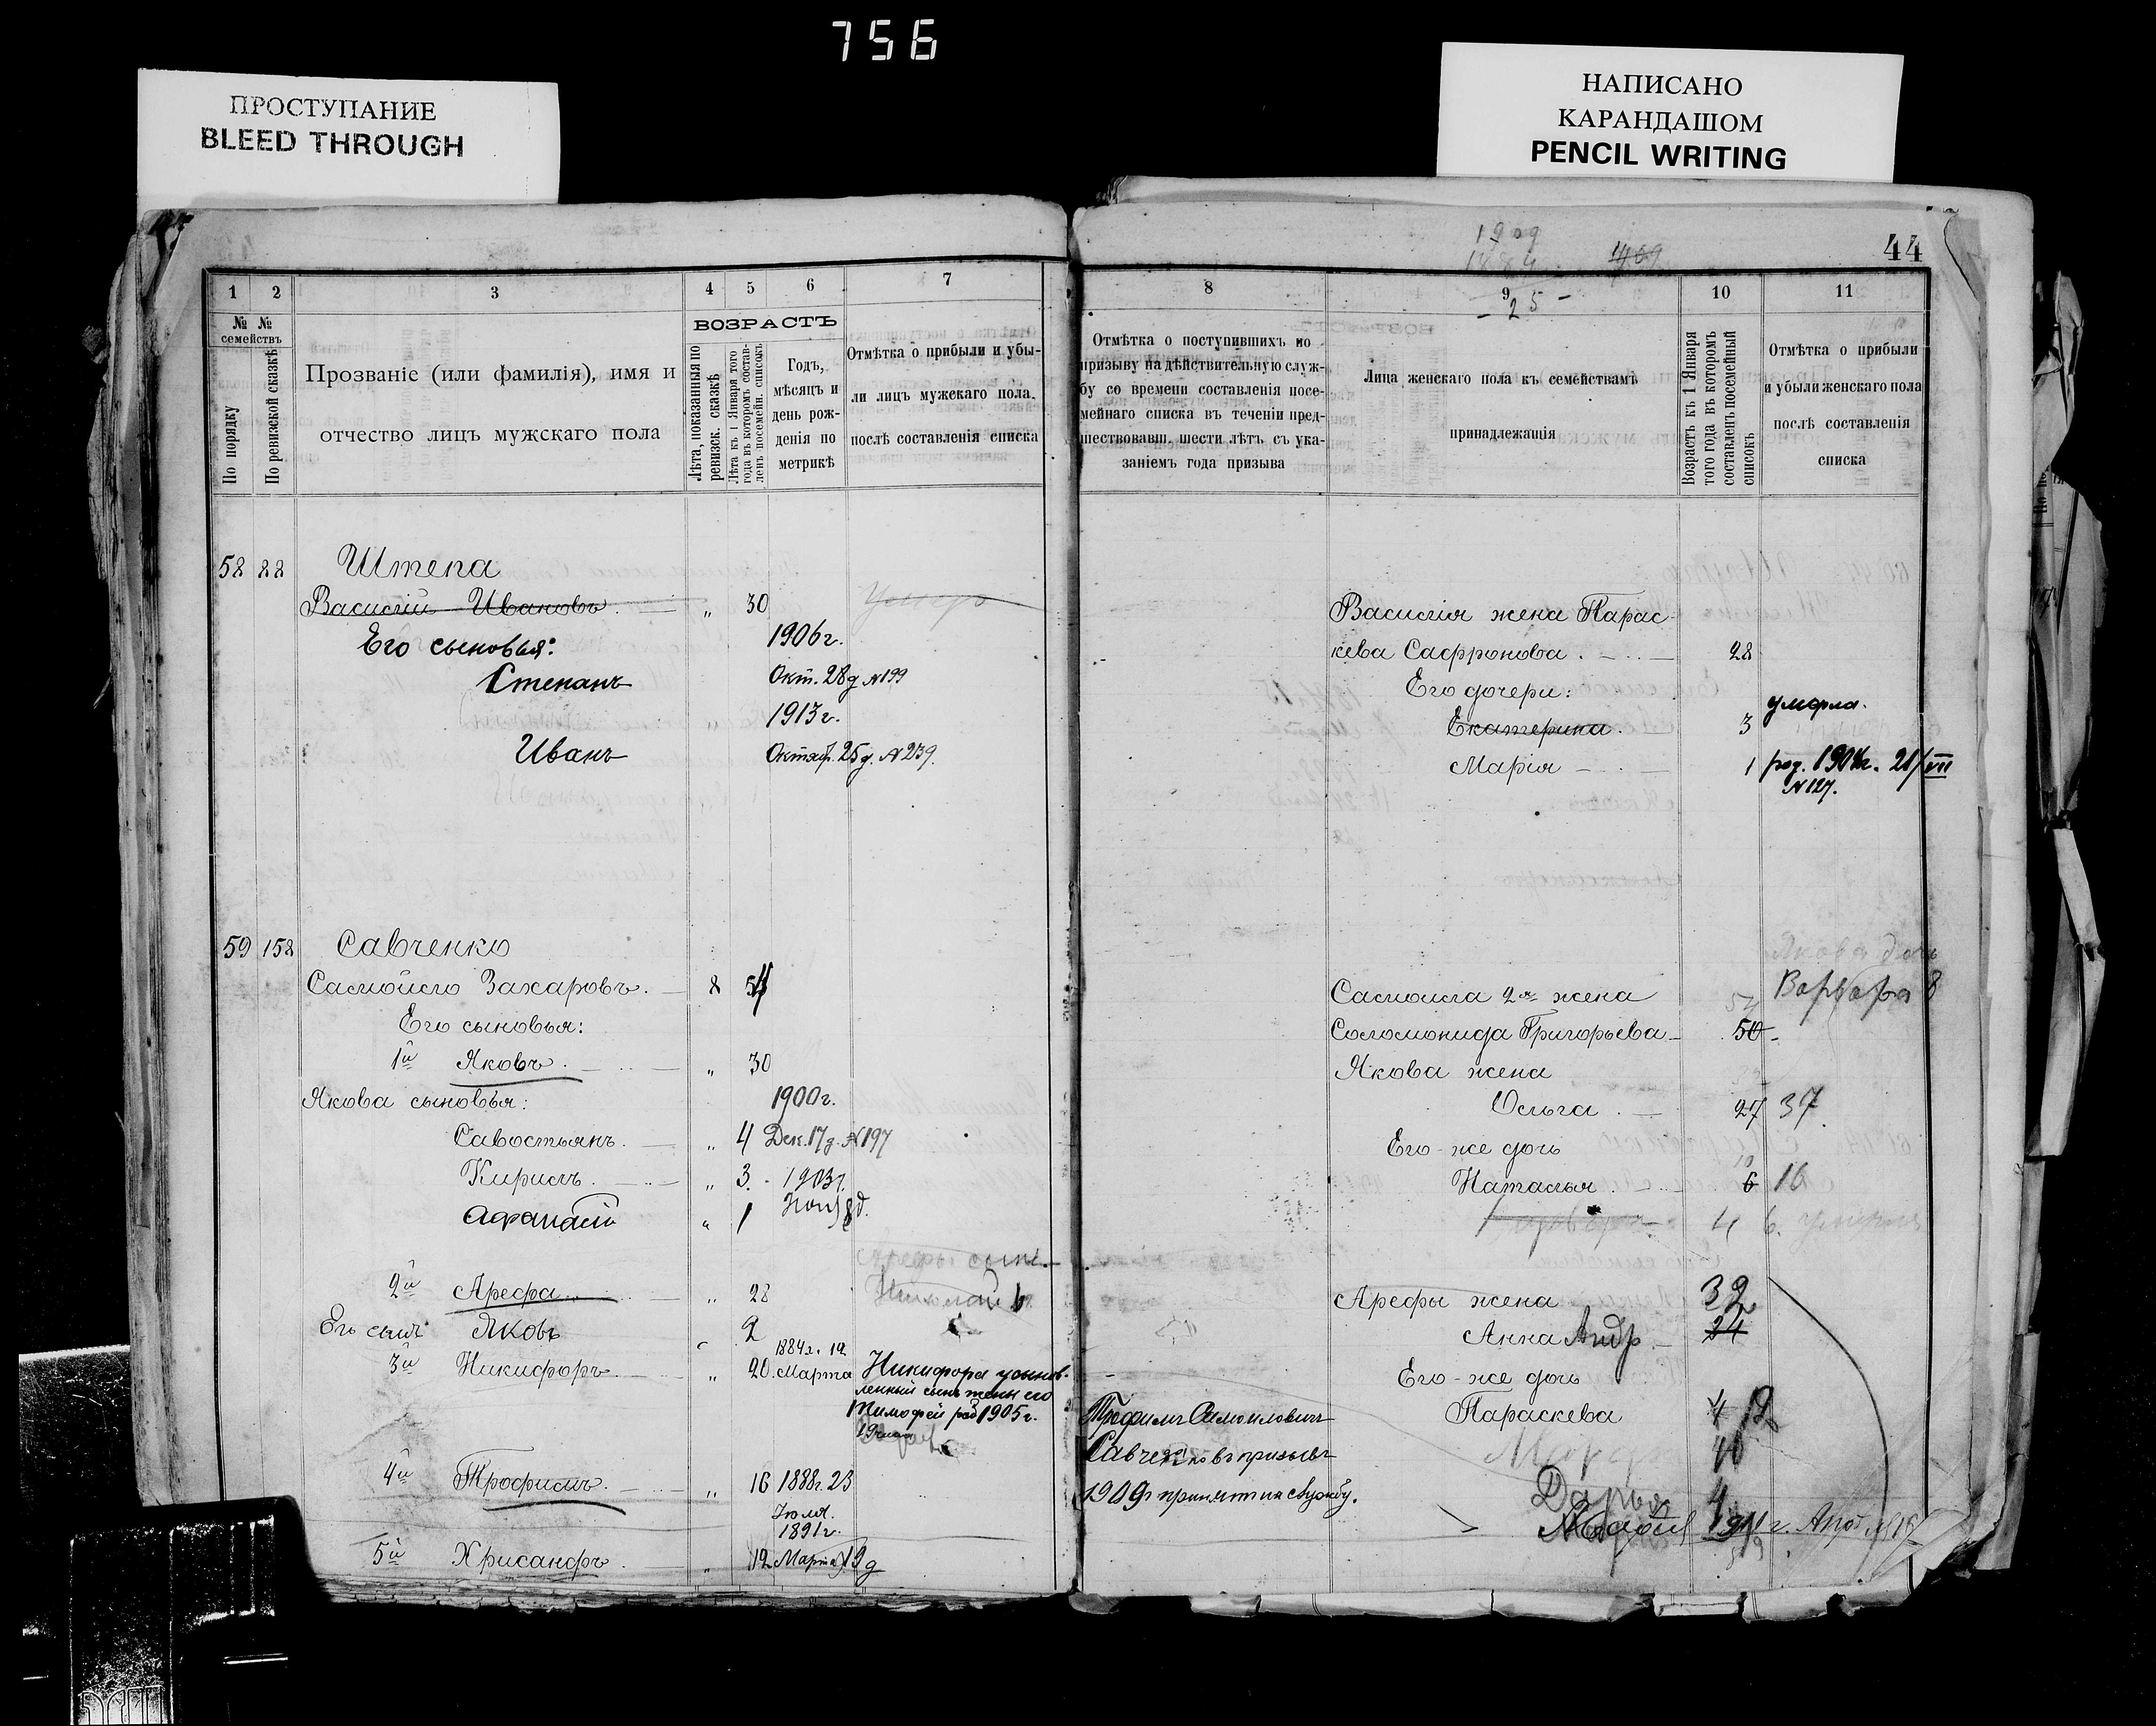 756
ПРОСТУПАНИЕ
BLEED THROUGH
НАПИСАНО
КАРАНДАШОМ
PENCIL WRITING
1
2
3
4
5
6
7
№ №
семействъ
По порядку
По ревизской сказкѣ
Прозваніе (или фамилія), имя и
отчество лицъ мужскаго пола
ВОЗРАСТЪ
Лѣта, показанныя по
ревизск. сказкѣ
Лѣта къ 1 Января того
года въ которомъ состав-
ленъ посемейн. списокъ
Годъ,
мѣсяцъ и
день рож-
денія по
метрикѣ
Отмѣтка о прибыли и убы-
ли лицъ мужскаго пола
послѣ составленія списка
58 88 Штепа
Василій Ивановъ. „ 30 Умеръ
Его сыновья: 1906г.
Степанъ Окт. 28д №199
1913г.
Иванъ Октяб. 25д. №239.
59 158 Савченко
Самойло Захаровъ. 8
Его сыновья:
1й Яковъ. „ 30
Якова сыновья: 1900г.
Савостьянъ. „ 4 Дек. 17д. №197
Кирилъ. „ 3. 1903г.
Афанасій „ 1
Арефы сынъ
2й Арефа „ 28 Николай
Его сынъ Яковъ 2
1884г. 12
3й Никифоръ. „ 20. Марта Никифора усынов-
ленный сынъ жены его
Тимофей род 1905г.
4й Трофимъ. „ 16 1888г. 23
Іюля.
1891г.
5й Хрисанфъ „ 12 Марта 19д
1909
1884
25
1909
44
8
9
10
11
Отмѣтка о поступившихъ по
призыву на дѣйствительную служ-
бу со времени составленія посе-
мейнаго списка въ теченіи пред-
шествовавш. шести лѣтъ съ ука-
заніемъ года призыва
Лица женскаго пола къ семействамъ
принадлежащія
Возрастъ къ 1 Января
того года въ которомъ
составленъ посемейный
списокъ
Отмѣтка о прибыли
и убыли женскаго пола
послѣ составленія
списка
Василія жена Парас-
кева Сафронова. 28
Его дочери:
Екатерина. 3 умерла.
Марія 1 род. 1904г. 21/VII
№127.
Якова дочь
Самойла 2я жена Варвара 8
Соломонида Григорьева 50
Якова жена
Ольга. 27 37
Его-же дочь
Наталья 6 16
4 6. умерла
Арефы жена 32
Анна Андр. 24
Его-же дочь
Трофимъ Самойловичъ Параскева 4 12
Савченко въ призывъ
1909г принятъ на службу. Дарья 4
1911г.